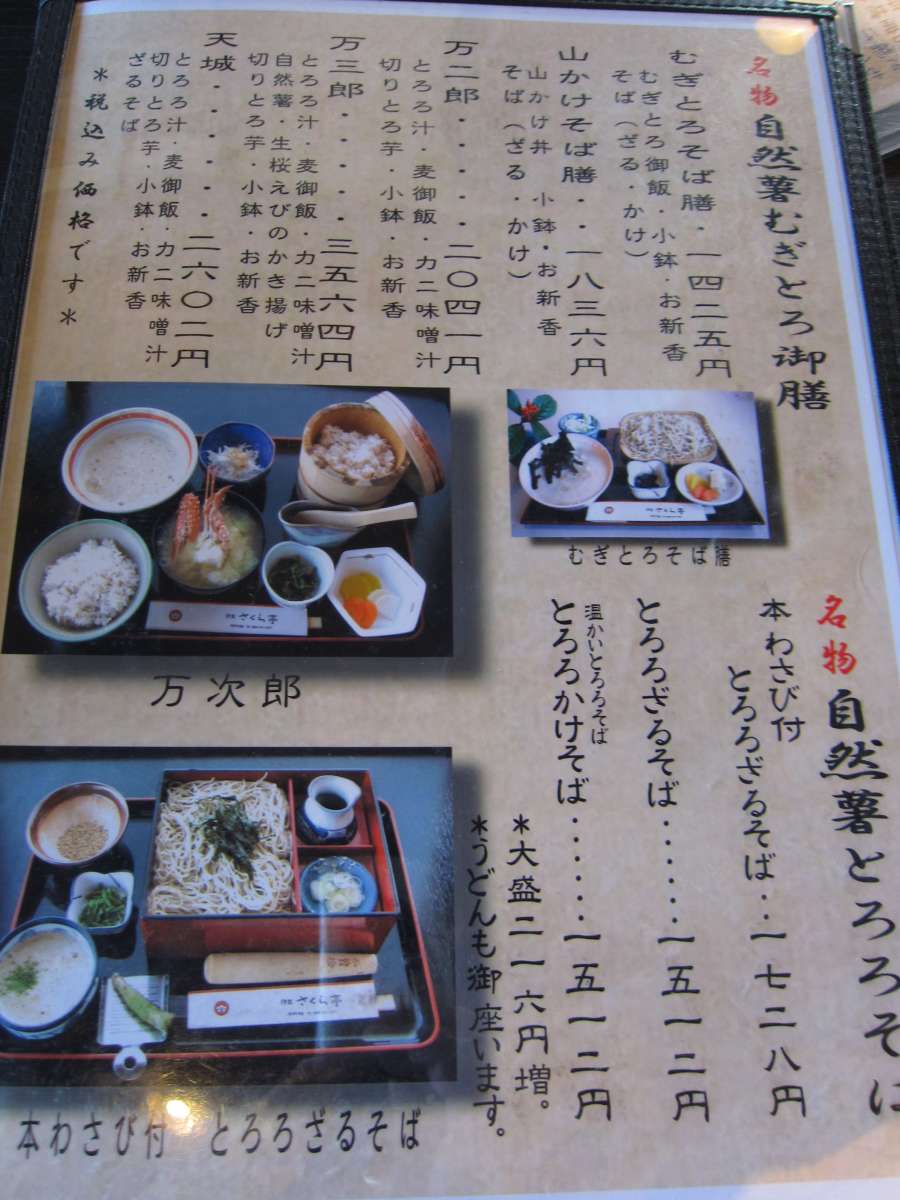 名物 自然薯むぎとろ御膳
むぎとろそば膳・一四二五円
むぎとろ御飯・小鉢・お新香
そば（ざる・かけ）
山かけそば膳・・一八三六円
山かけ丼 小鉢・お新香
そば（ざる・かけ）
万二郎・・・・・二〇四一円
とろろ汁・麦御飯・カニ味噌汁
切りとろ芋・小鉢・お新香
万三郎・・・・・三五六四円
とろろ汁・麦御飯・カニ味噌汁
自然薯・生桜えびのかき揚げ
切りとろ芋・小鉢・お新香
天城・・・・・・二六〇二円
とろろ汁・麦御飯・カニ味噌汁
切りとろ芋・小鉢・お新香
ざるそば
＊税込み価格です＊
むぎとろそば膳
さくら亭
万次郎
名物 自然薯とろろそば
本わさび付
とろろざるそば・・一七二八円
とろろざるそば・・・・・・一五一二円
温かいとろろそば
とろろかけそば・・・・・・一五一二円
＊大盛二一六円増。
＊うどんも御座います。
さくら亭
本わさび付 とろろざるそば